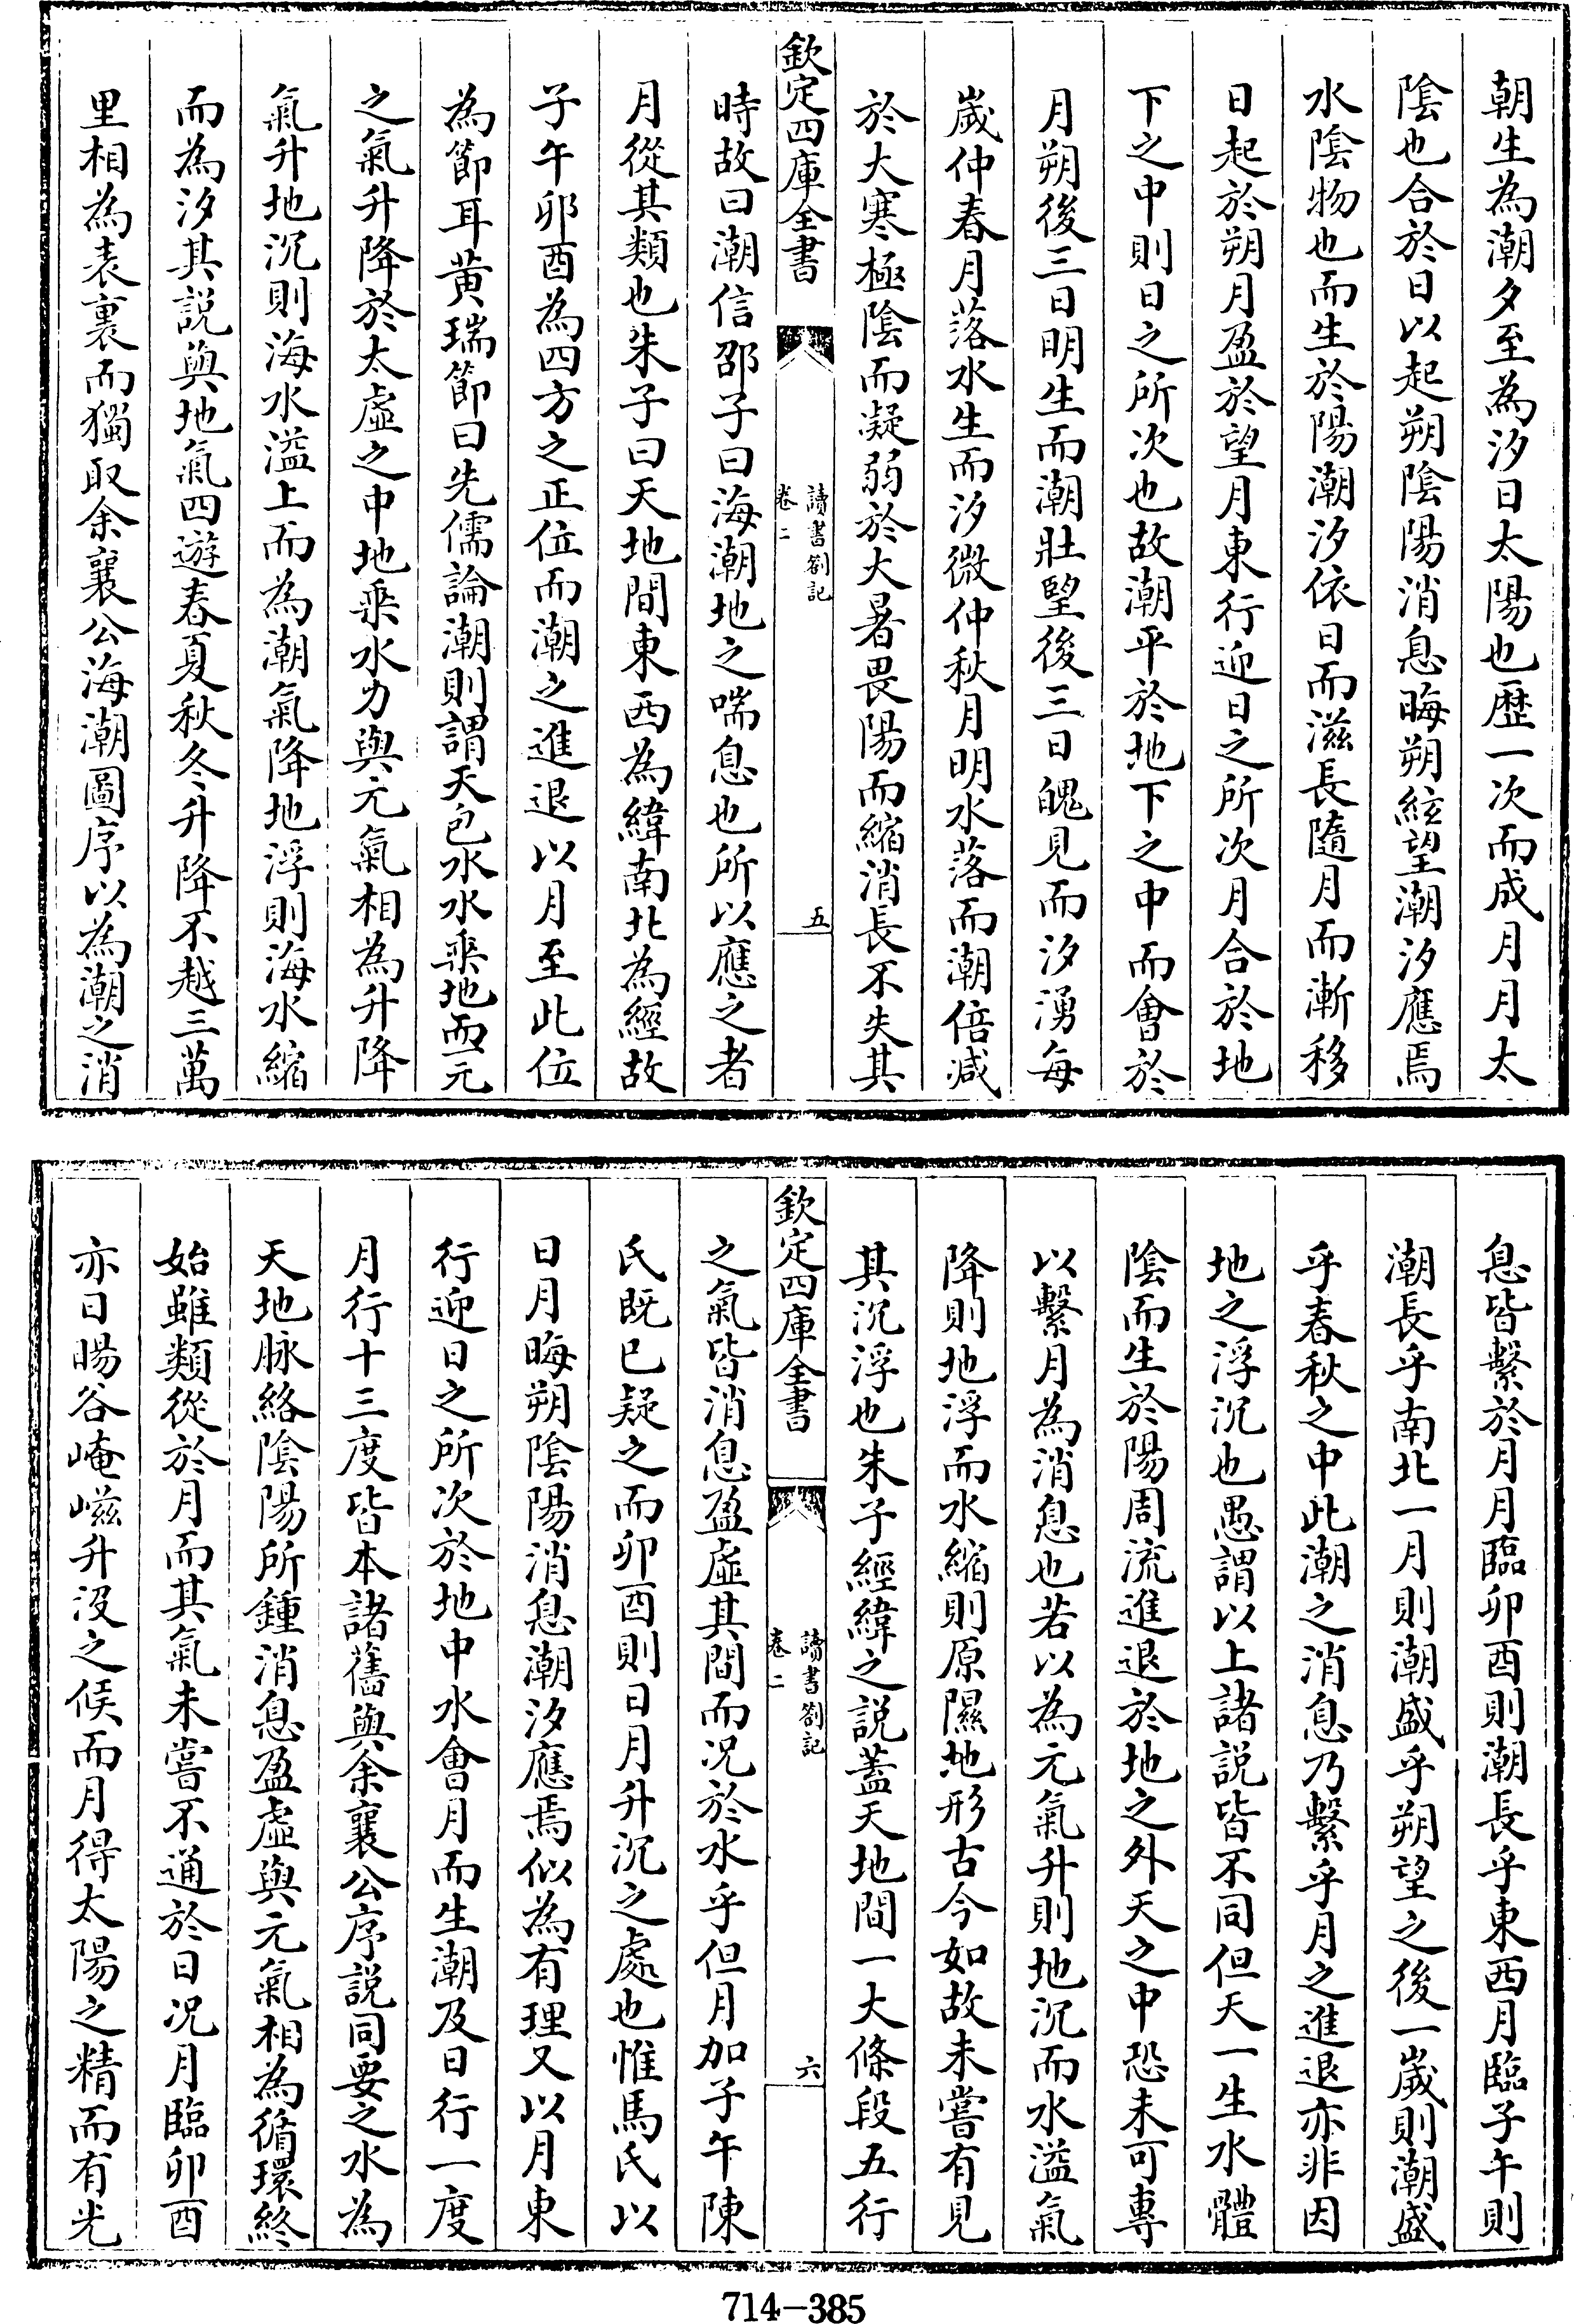 朝生為潮夕至為汐日太陽也歷一次而成月月太
陰也合於日以起朔陰陽消息晦朔絃望潮汐應焉
水陰物也而生於陽潮汐依日而滋長隨月而漸移
日起於朔月盈於望月東行迎日之所次月合於地
下之中則日之所次也故潮平於地下之中而會於
月朔後三日明生而潮壯望後三日魄見而汐湧每
歲仲春月落水生而汐微仲秋月明水落而潮倍減
於大寒極陰而凝弱於大暑畏陽而縮消長不失其
欽定四庫全書
讀書劄記
卷二
五
時故曰潮信邵子曰海潮地之喘息也所以應之者
月從其類也朱子曰天地間東西為緯南北為經故
子午卯酉為四方之正位而潮之進退以月至此位
為節耳黃瑞節曰先儒論潮則謂天包水水乘地而元
之氣升降於太虛之中地乘水力與元氣相為升降
氣升地沉則海水溢上而為潮氣降地浮則海水縮
而為汐其說與地氣四遊春夏秋冬升降不越三萬
里相為表裏而獨取余襄公海潮圖序以為潮之消
息皆繫於月月臨卯酉則潮長乎東西月臨子午則
潮長乎南北一月則潮盛乎朔望之後一歲則潮盛
乎春秋之中此潮之消息乃繫乎月之進退亦非因
地之浮沉也愚謂以上諸說皆不同但天一生水體
陰而生於陽周流進退於地之外天之中恐未可專
以繫月為消息也若以為元氣升則地沉而水溢氣
降則地浮而水縮則原隰地形古今如故未嘗有見
其沉浮也朱子經緯之說蓋天地間一大條段五行
欽定四庫全書
讀書劄記
卷二
六
之氣皆消息盈虛其間而况於水乎但月加子午陳
氏既已疑之而卯酉則日月升沉之處也惟馬氏以
日月晦朔陰陽消息潮汐應焉似為有理又以月東
行迎日之所次於地中水會月而生潮及日行一度
月行十三度皆本諸舊與余襄公序說同要之水為
天地脉絡陰陽所鍾消息盈虛與元氣相為循環終
始雖類從於月而其氣未嘗不通於日况月臨卯酉
亦日暘谷崦嵫升沒之候而月得太陽之精而有光
714-385